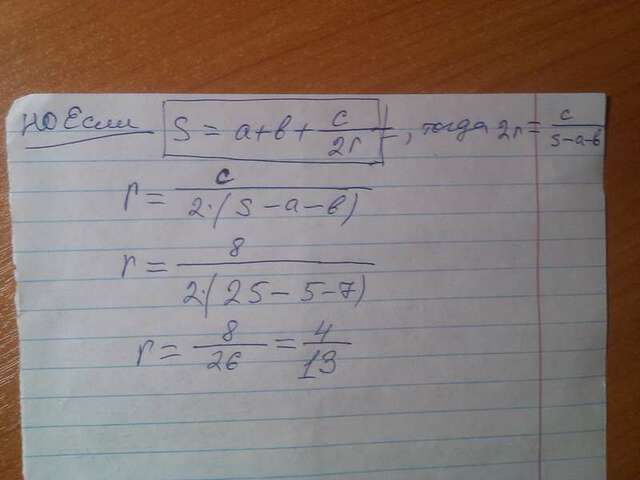 но Если S = a+в+ c/2r, тогда 2r = c/(S-a-в)
r = c/(2·(S-a-в))
r = 8/(2·(25-5-7))
r = 8/26 = 4/13